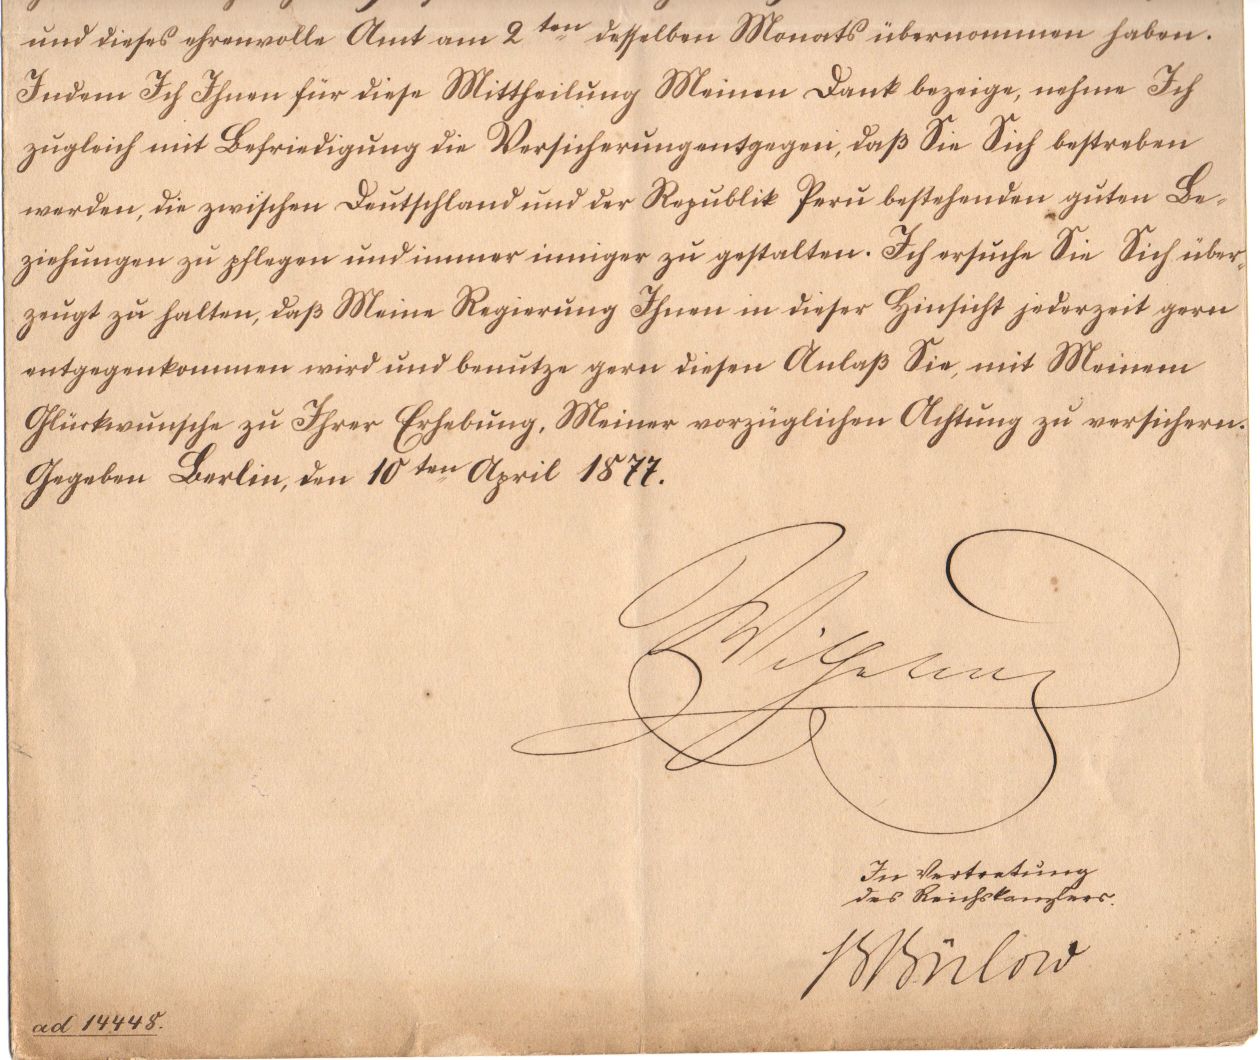 und dieses ehrenvolle Amt am 2ten desselben Monats übernommen haben.
Indem Ich Ihnen für diese Mittheilung Meinen Dank bezeige, nehme Ich
zugleich mit Befriedigung die Versicherung entgegen, daß Sie Sich bestreben
werden, die zwischen Deutschland und der Republik Peru bestehenden guten Be-
ziehungen zu pflegen und immer inniger zu gestalten. Ich ersuche Sie Sich über-
zeugt zu halten, daß Meine Regierung Ihnen in dieser Hinsicht jederzeit gern
entgegenkommen wird und benutze gern diesen Anlaß Sie, mit Meinem
Glückwunsche zu Ihrer Erhebung, Meiner vorzüglichen Achtung zu versichern.
Gegeben Berlin, den 10ten April 1877.
Wilhelm
In Vertretung
des Reichskanzlers.
Bülow
ad 14448.